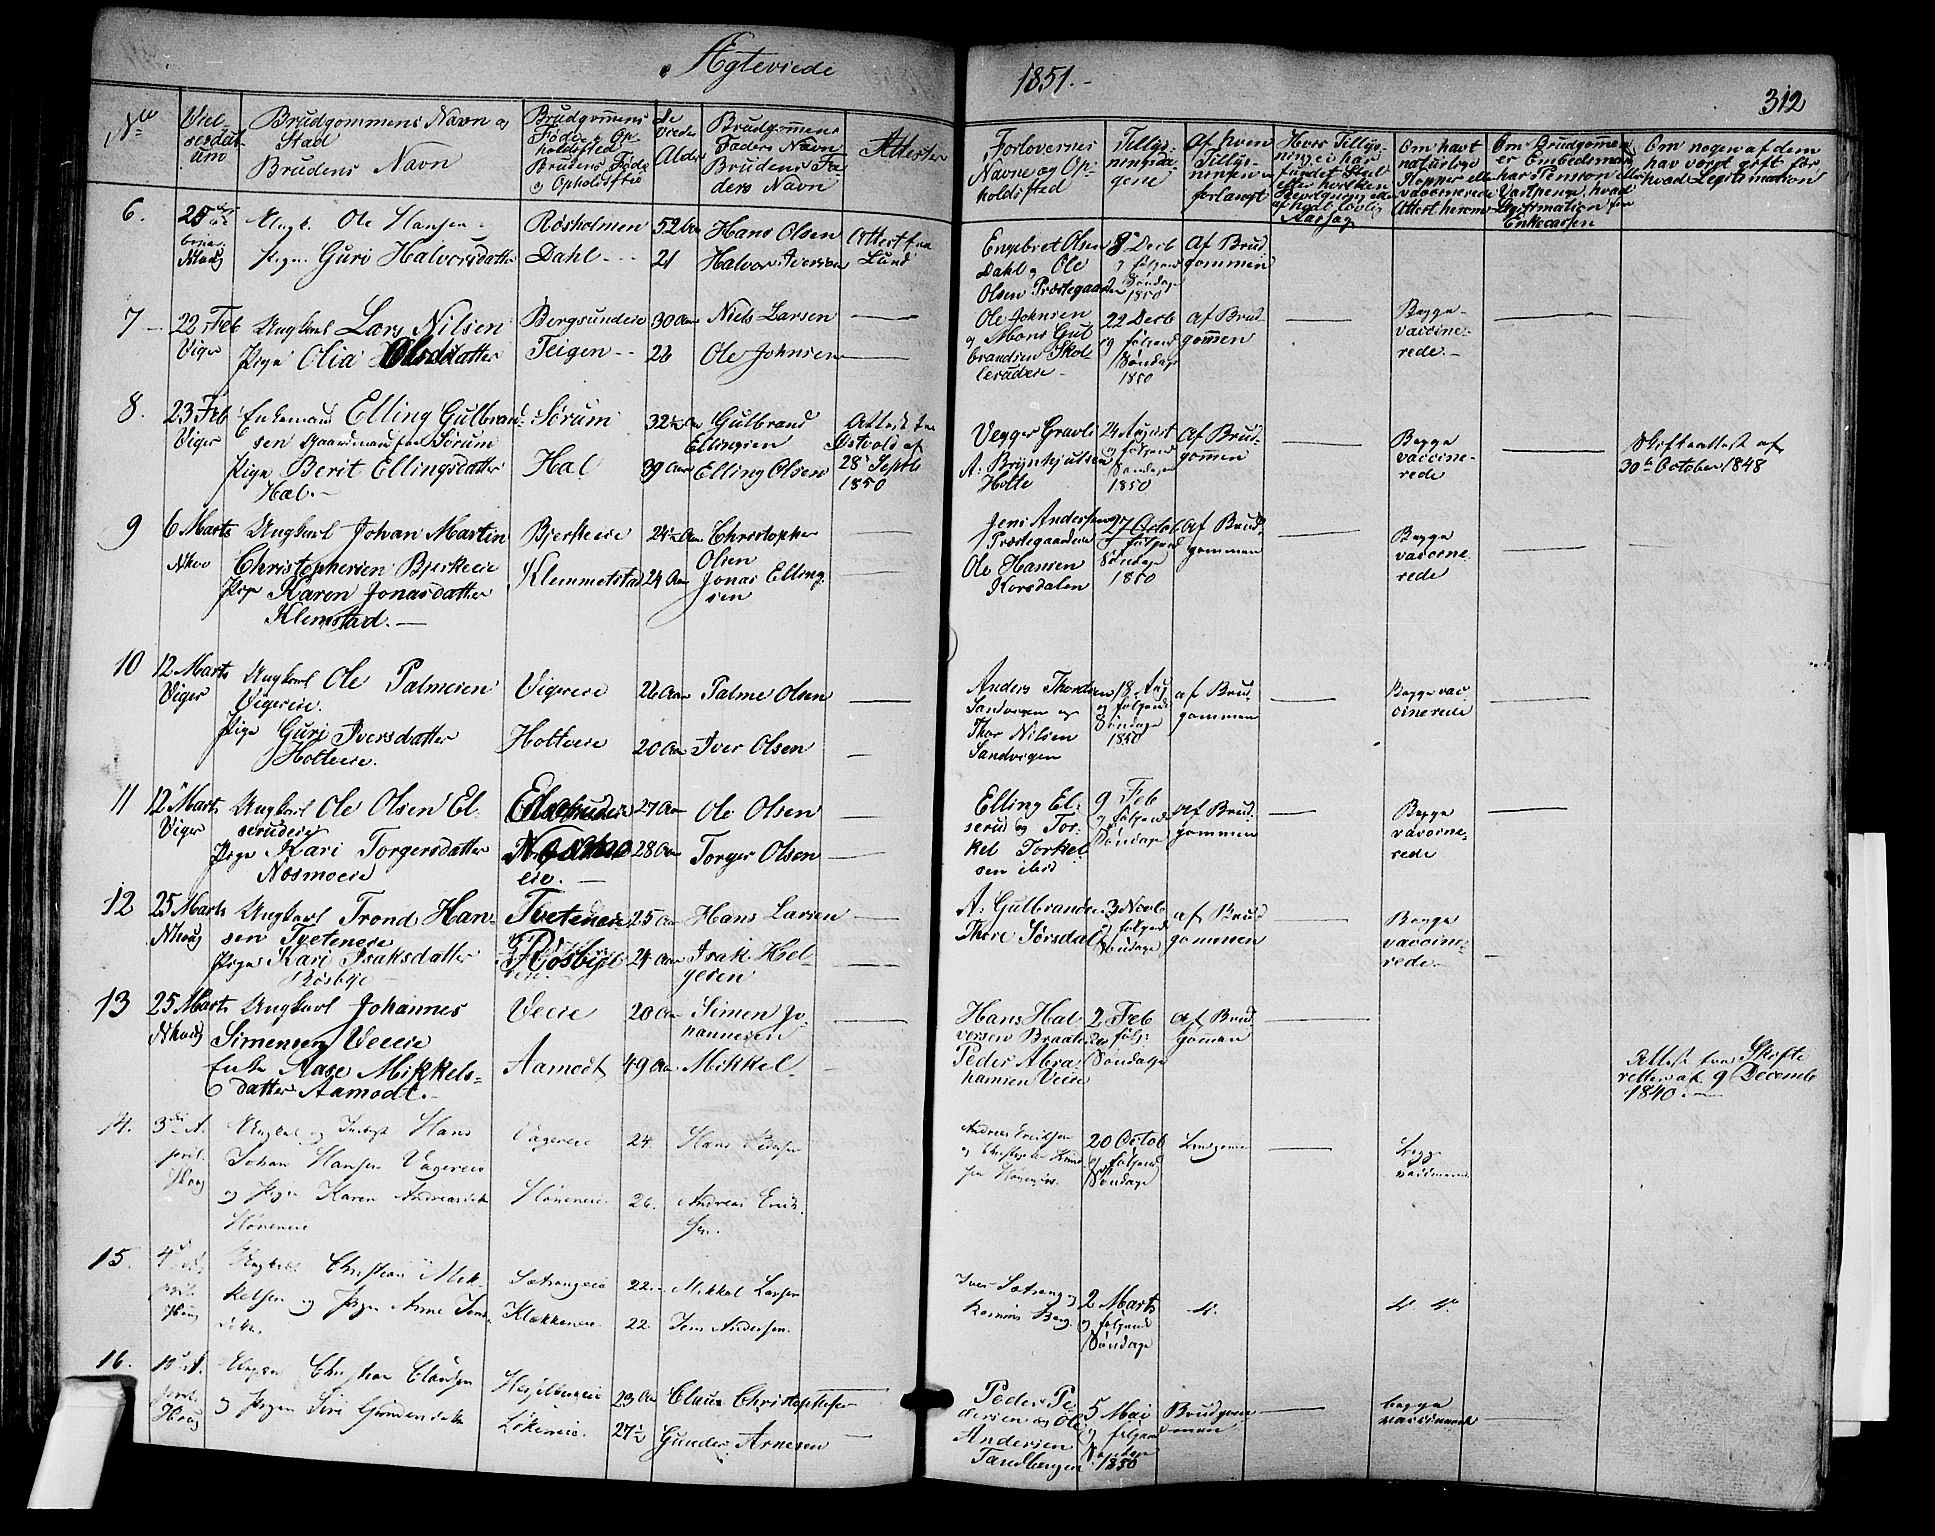 Ægteviede
1851.-
312
No
Viel-
sesdat-
um
Brudgommens Navn og
Stad
Brudens Navn
Brudgommens
Føde & Op-
holdssted
Brudens Føde
og Opholdsstæd
De
viedes
Alder
Brudgommens
Faders Navn
Brudens Fa-
ders Navn
Attester
Forlovernes
Navne og Op-
holdssted
Tillys-
ningsda-
gene
Af hvem
Tillys-
ningen er
forlangt
Om havt
naturlige
Kopper eller
vaccinerede
Attest herom
Om Brudgommen
er Embedsmand
Enkecassen
Om nogen af dem
har været gift før,
hvad Legitimation
6.
25
Ungk. Ole Hansen
Røsholmen
52 Aar
Hans Olsen
Attest fra
Pige Guri Halvorsdatter
Dahl
21
Halvor Iversen
Lund
Engebret Olsen
Dahl og Ole
Olsen Præstegaarden
8 Decb
og følgend
Søndage
1850
Af Brud
gommen
7
22 Feb
Viger
Ungkarl Lars Nilsen
Pige Olia Olsdatter
Bergsundeie
Teigen
30 Aar
26
Niels Larsen
Ole Johnsen
Ole Johnsen
og Mons Gul
brandsen Skol
lerudeie
22 Decb
og følgend
Søndage
1850
Af Brud
gommen
Begge
vaccine-
rede
8.
23 Feb
Viger
Enkemand Elling Gulbrand-
sen Gaardmand fra Sørum
Pige Berit Ellingsdatter
Hal.
Sørum
Hal
32½ Aar
39 Aar
Gulbrand
Ellingsen
Elling Olsen
Attest fra
Østvold af
28 Septb
1850
Vegger Gravli
A. Brynhjulsen
Holte
24 August
og følgend
Søndage
1850
Af Brud-
gommen
Begge
vaccine-
rede
Skifteattest af
30te October 1848
9
6 Marts
Ungkarl Johan Martin
Christophersen Bjerkeeie
Pige Karen Jonasdatter
Klemstad.
Bjerkeeie
Klemmetstad
24½ Aar
24 Aar
Christopher
Olsen
Jonas Elling-
sen
Jens Andersen
Præstegaardeie
Ole Hansen
Korsdalen
27 Octob
og følgend
Søndage
1850
Af Brud
gommen
Begge
vaccine-
rede
10
12 Marts
Viger
Ungkarl Ole Palmesen
Vigereie.
Pige Guri Iversdatter
Holteeie.
Vigereie
Holteeie
26 Aar
20 Aar
Palme Olsen
Iver Olsen
Anders Thordsen
Sandvigen og
Thor Nilsen
Sandvigen
18 Aug
og følgende
Søndage
1850
af Brud-
gommen
Begge vac
cinerede
11
12 Marts
Viger
Ungkarl Ole Olsen El-
serudeie
Pige Kari Torgersdatter
Næsmoeie
Elserudeie
eie.
27 Aar
28 Aar
Ole Olsen
Torger Olsen
Elling El-
serud og Tor-
kel Torkel-
sen ibid
9 Feb
og følgend
Søndage
af Brud
gommen
Begge
vaccine-
rede
12
25 Marts
Ungkarl Trond Han-
sen Tveteneie
Pige Kari Isaksdatter
Røsbye
Tveteneie
Røsbye
25 Aar
24 Aar
Hans Larsen
Isak Hel-
gesen
A. Gulbrandsen
Thore Sørsdal
3 Novb
og følgende
Søndage
af Brud
gommen
Begge
vaccine-
rede
13
25 Marts
Ungkarl Johannes
Simensen Veeeie
Enke Aase Mikkels-
datter Aamodt.
Veeie
Aamodt
20 Aar
49 Aar
Simen Jo-
hannesen
Mikkel
Hans Hal
vorsen Braaten
Peder Abra
hamsen Veeie
2 Feb
og følg.
Søndage
af Brud
gommen
Attest fra Skifte
retten af 9 Decemb
1840
14.
3die A-
pril
Haug
Hans
Johan Hansen Vagereie
og Pige Karen Andreasdatter
Høneneie
Vagereie
Høneneie
24.
26.
Hans
Andreas Erik-
sen.
Andreas Eriksen
20 Octob
og følgend
Søndage
Brudgommen
begge
15.
4 A-
pril
Haug
Ungkarl Christian Mik-
kelsen og Pige Anne Jens-
datter.
Sætrangeie
Klækkeneie
22.
22.
Mikkel Larsen
Jens Andersen.
Iver Sætrang og
Rasmus Berg.
2 Marts
og følgend
Søndage
16.
April
Haug
Ungkarl Christian Clausen
og Pigen Siri Gundersdatter
Hesselbergeie
Lökeneie.
23 Aar
27½
Claus Christophersen
Gunder Arnesen
Peder Pe-
dersen og Ole
Andersen
Tandbergen
5 Mai
og følgend
Søndage
1850
Brudgom-
men
begge